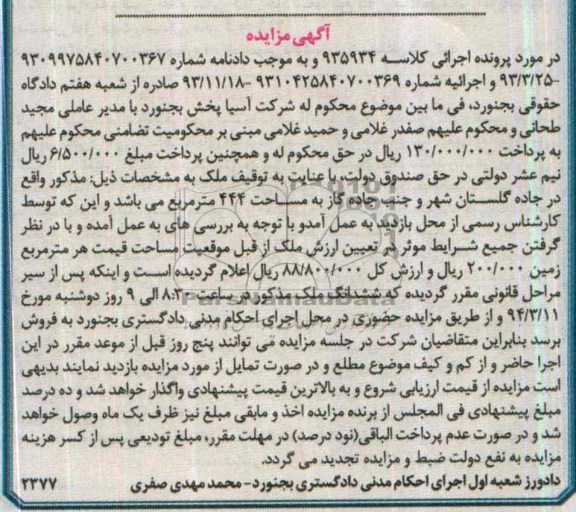 آگهی مزایده
در مورد پرونده اجرائی کلاسه ۹۳۵۹۳۴ و به موجب دادنامه شماره ۹۳۰۹۹۷۵۸۴۰۷۰۰۳۶۷
-۹۳/۳/۲۵ و اجرائیه شماره ۹۳۱۰۴۲۵۸۴۰۷۰۰۳۶۹ -۹۳/۱۱/۱۸ صادره از شعبه هفتم دادگاه
حقوقی بجنورد، فی ما بین موضوع محکوم له شرکت آسیا پخش بجنورد با مدیر عاملی مجید
طحانی و محکوم علیهم صفدر غلامی و حمید غلامی مبنی بر محکومیت تضامنی محکوم علیهم
به پرداخت ۱۳۰/۰۰۰/۰۰۰ ریال در حق محکوم له و همچنین پرداخت مبلغ ۶/۵۰۰/۰۰۰ ریال
نیم عشر دولتی در حق صندوق دولت، با عنایت به توقیف ملک به مشخصات ذیل: مذکور واقع
در جاده گلستان شهر و جنب جاده گاز به مساحت ۴۴۴ مترمربع می باشد و این که توسط
کارشناس رسمی از محل بازدید به عمل آمدو با توجه به بررسی های به عمل آمده و با در نظر
گرفتن جمیع شرایط موثر در تعیین ارزش ملک از قبل موقعیت مساحت قیمت هر مترمربع
زمین ۲۰۰/۰۰۰ ریال و ارزش کل ۸۸/۸۰۰/۰۰۰ ریال اعلام گردیده است و اینکه پس از سیر
مراحل قانونی مقرر گردیده که ششدانگ ملک مذکور در ساعت ۸:۳۰ الی ۹ روز دوشنبه مورخ
۹۴/۳/۱۱ و از طریق مزایده حضوری در محل اجرای احکام مدنی دادگستری بجنورد به فروش
برسد بنابراین متقاضیان شرکت در جلسه مزایده می توانند پنج روز قبل از موعد مقرر در این
اجرا حاضر و از کم و کیف موضوع مطلع و در صورت تمایل از مورد مزایده بازدید نمایند بدیهی
است مزایده از قیمت ارزیابی شروع و به بالاترین قیمت پیشنهادی واگذار خواهد شد و ده درصد
مبلغ پیشنهادی فی المجلس از برنده مزایده اخذ و مابقی مبلغ نیز ظرف یک ماه وصول خواهد
شد و در صورت عدم پرداخت الباقی(نود درصد) در مهلت مقرر، مبلغ تودیعی پس از کسر هزینه
مزایده به نفع دولت ضبط و مزایده تجدید می گردد.
دادورز شعبه اول اجرای احکام مدنی دادگستری بجنورد- محمد مهدی صفری ۲۳۷۷